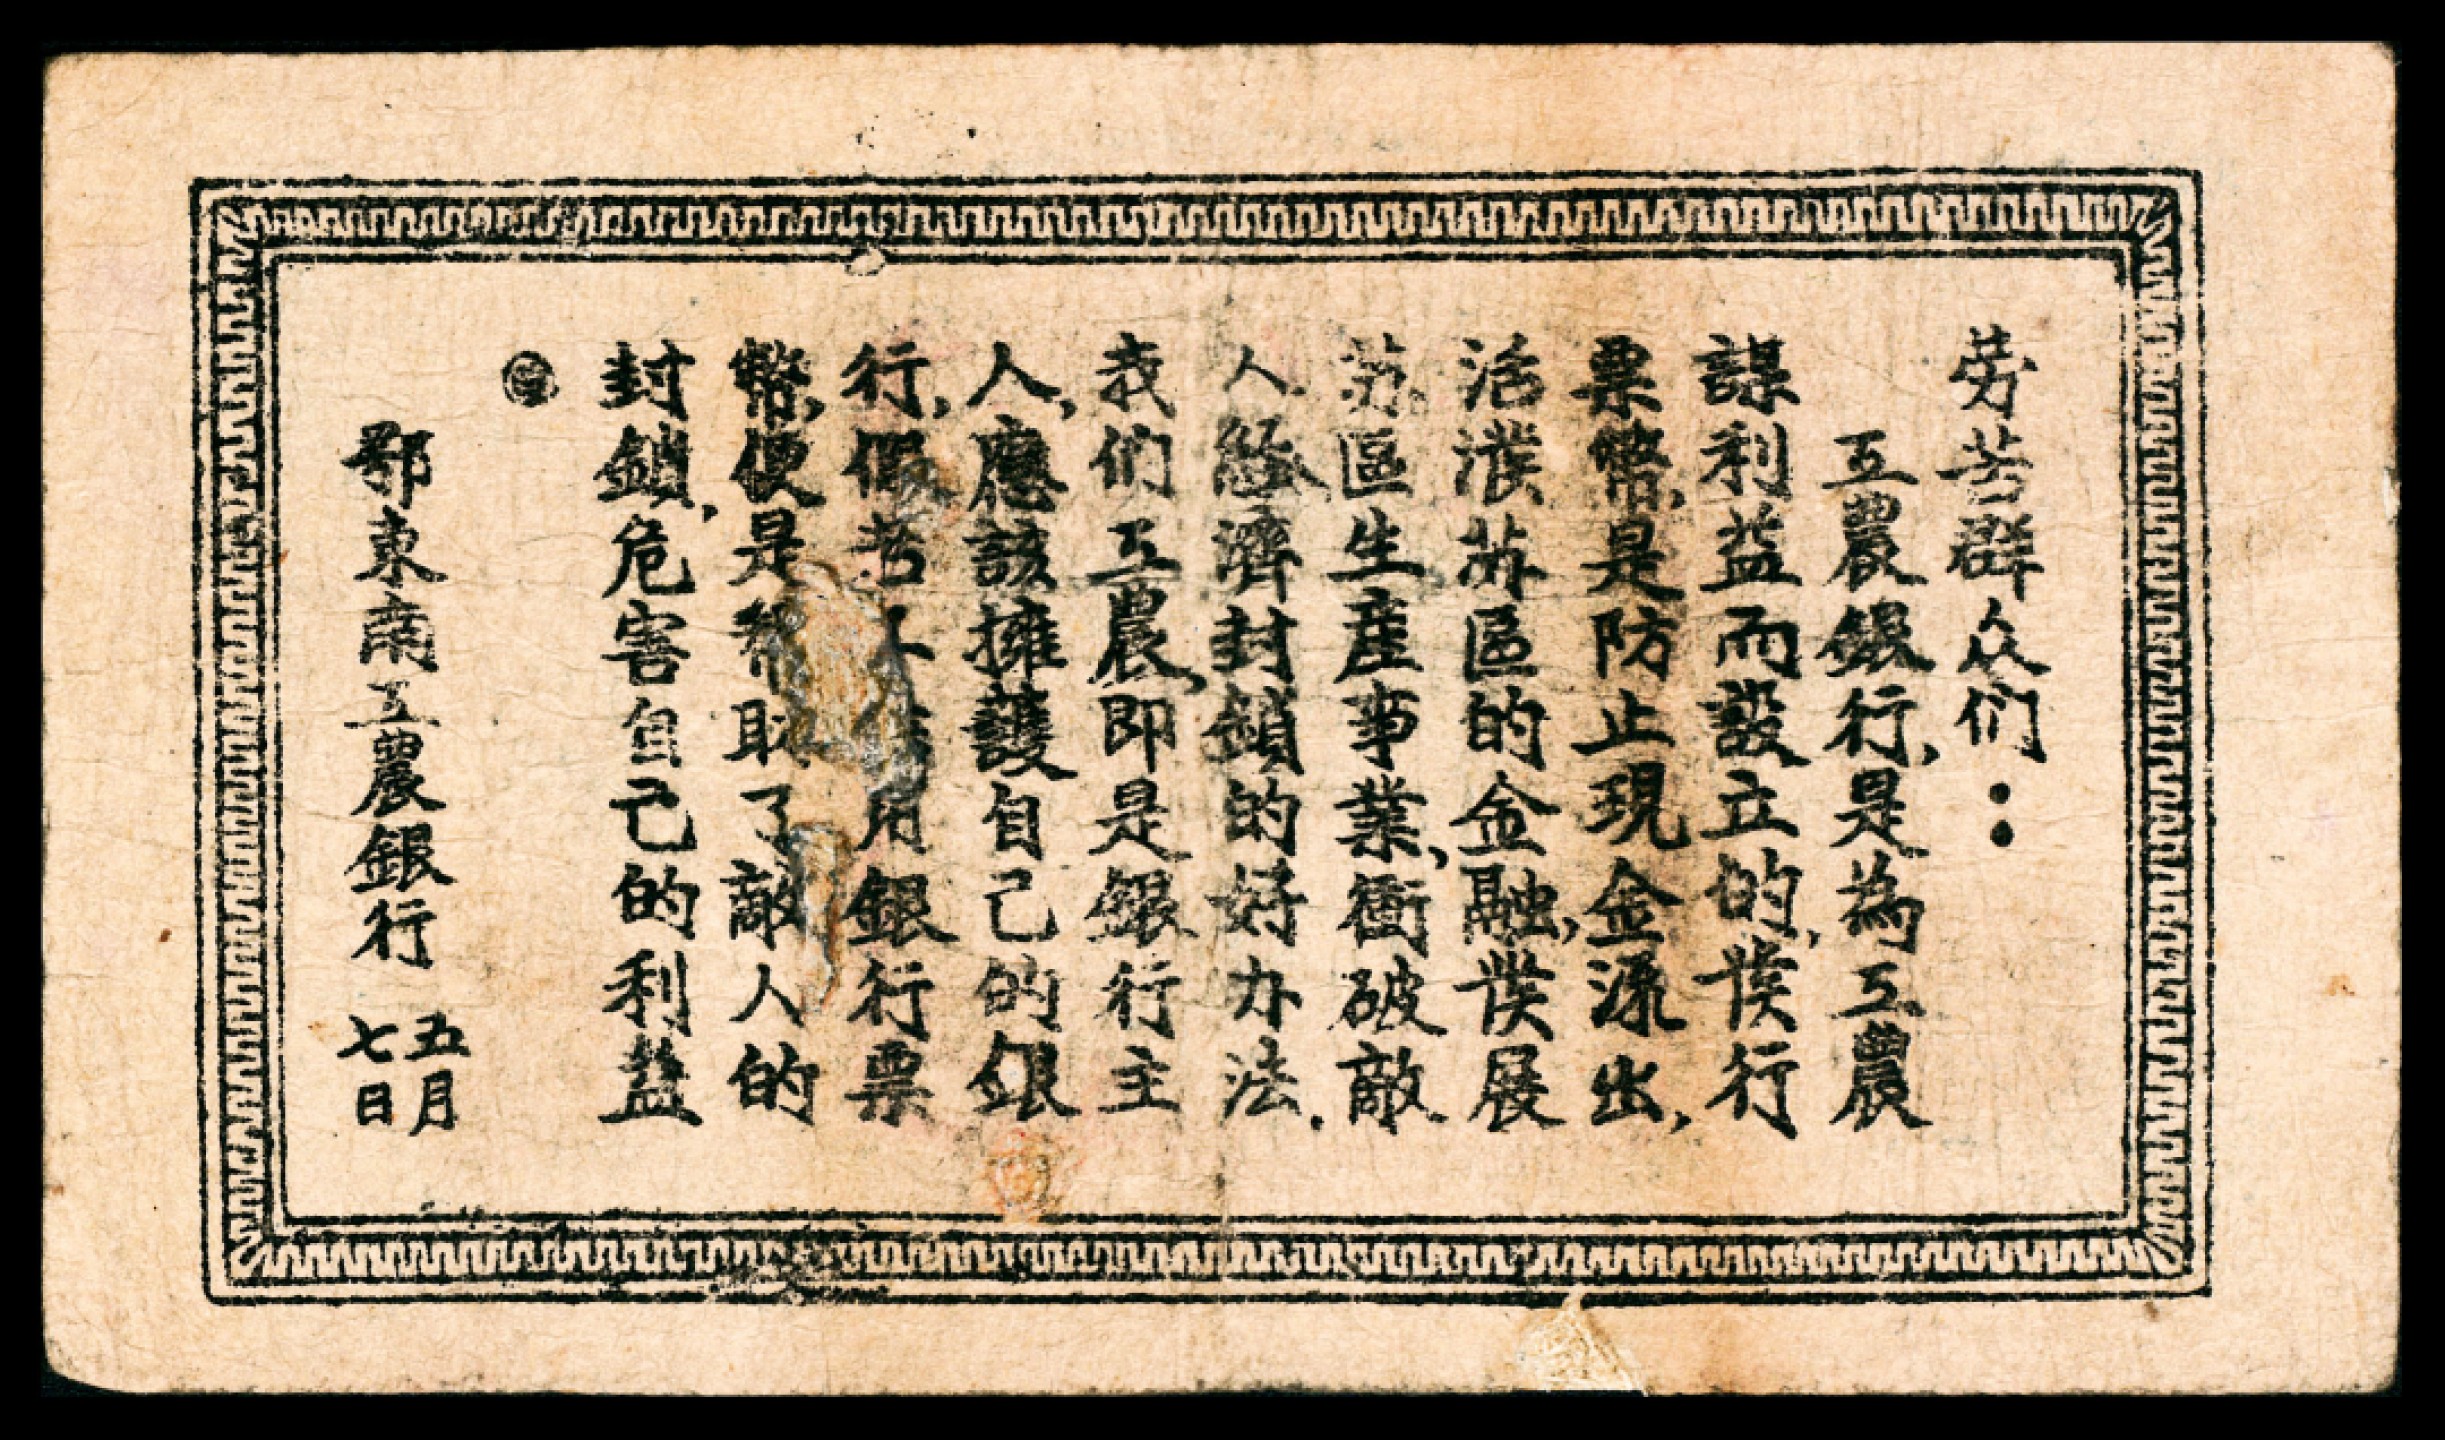 劳苦群众们：
工農銀行,是為工農
謀利益而設立的,發行
票幣,是防止現金流出,
活濮苏區的金融,發展
苏區生產事業,衝破敵
人經濟封鎖的好办法.
我们工農,即是銀行主
人,應該擁護自己的銀
行,假若不用銀行票
幣,便是帮助了敵人的
封鎖,危害自己的利益
鄂東南工農銀行
五月
七日